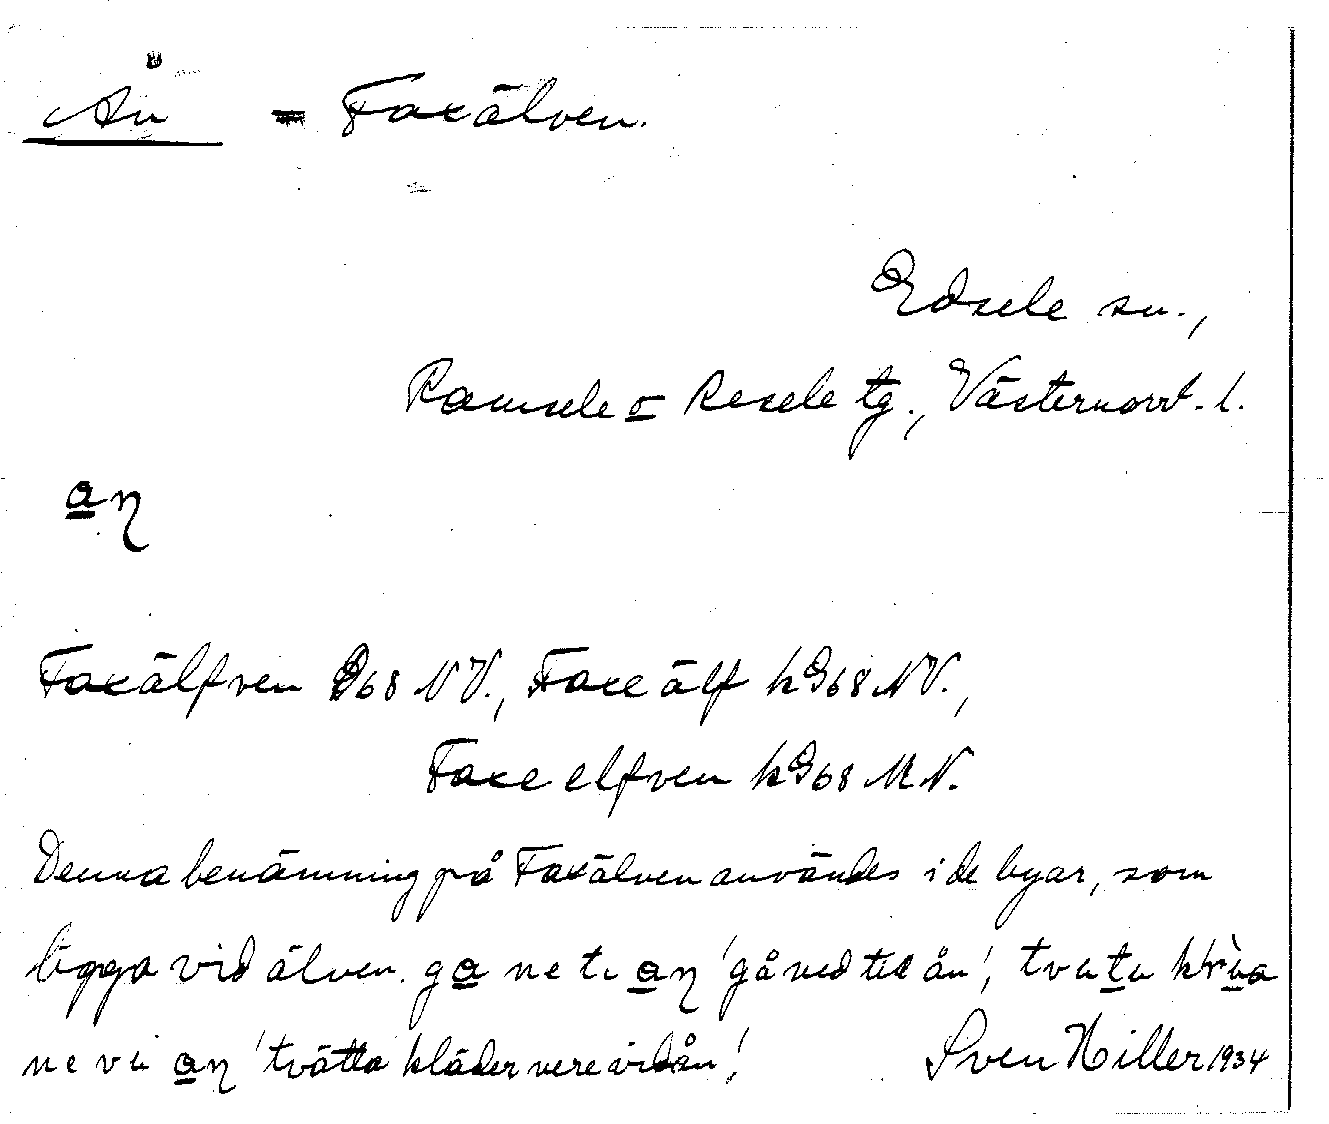 Ån = Faxälven.
Edsele sn.,
Ramsele o Resele tg., Västernorrl. l.
a̲ɳ
Faxälfven G68 NV., Faxe älf hG68 NV.,
Faxe elfven hG68 MN.
Denna benämning på Faxälven användes i de byar, som
ligga vid älven. ga̲ ne te a̲ɳ 'gå ned till ån',
ne a̲ɳ 'tvätta kläder nere vid ån'! Sven Hiller 1934